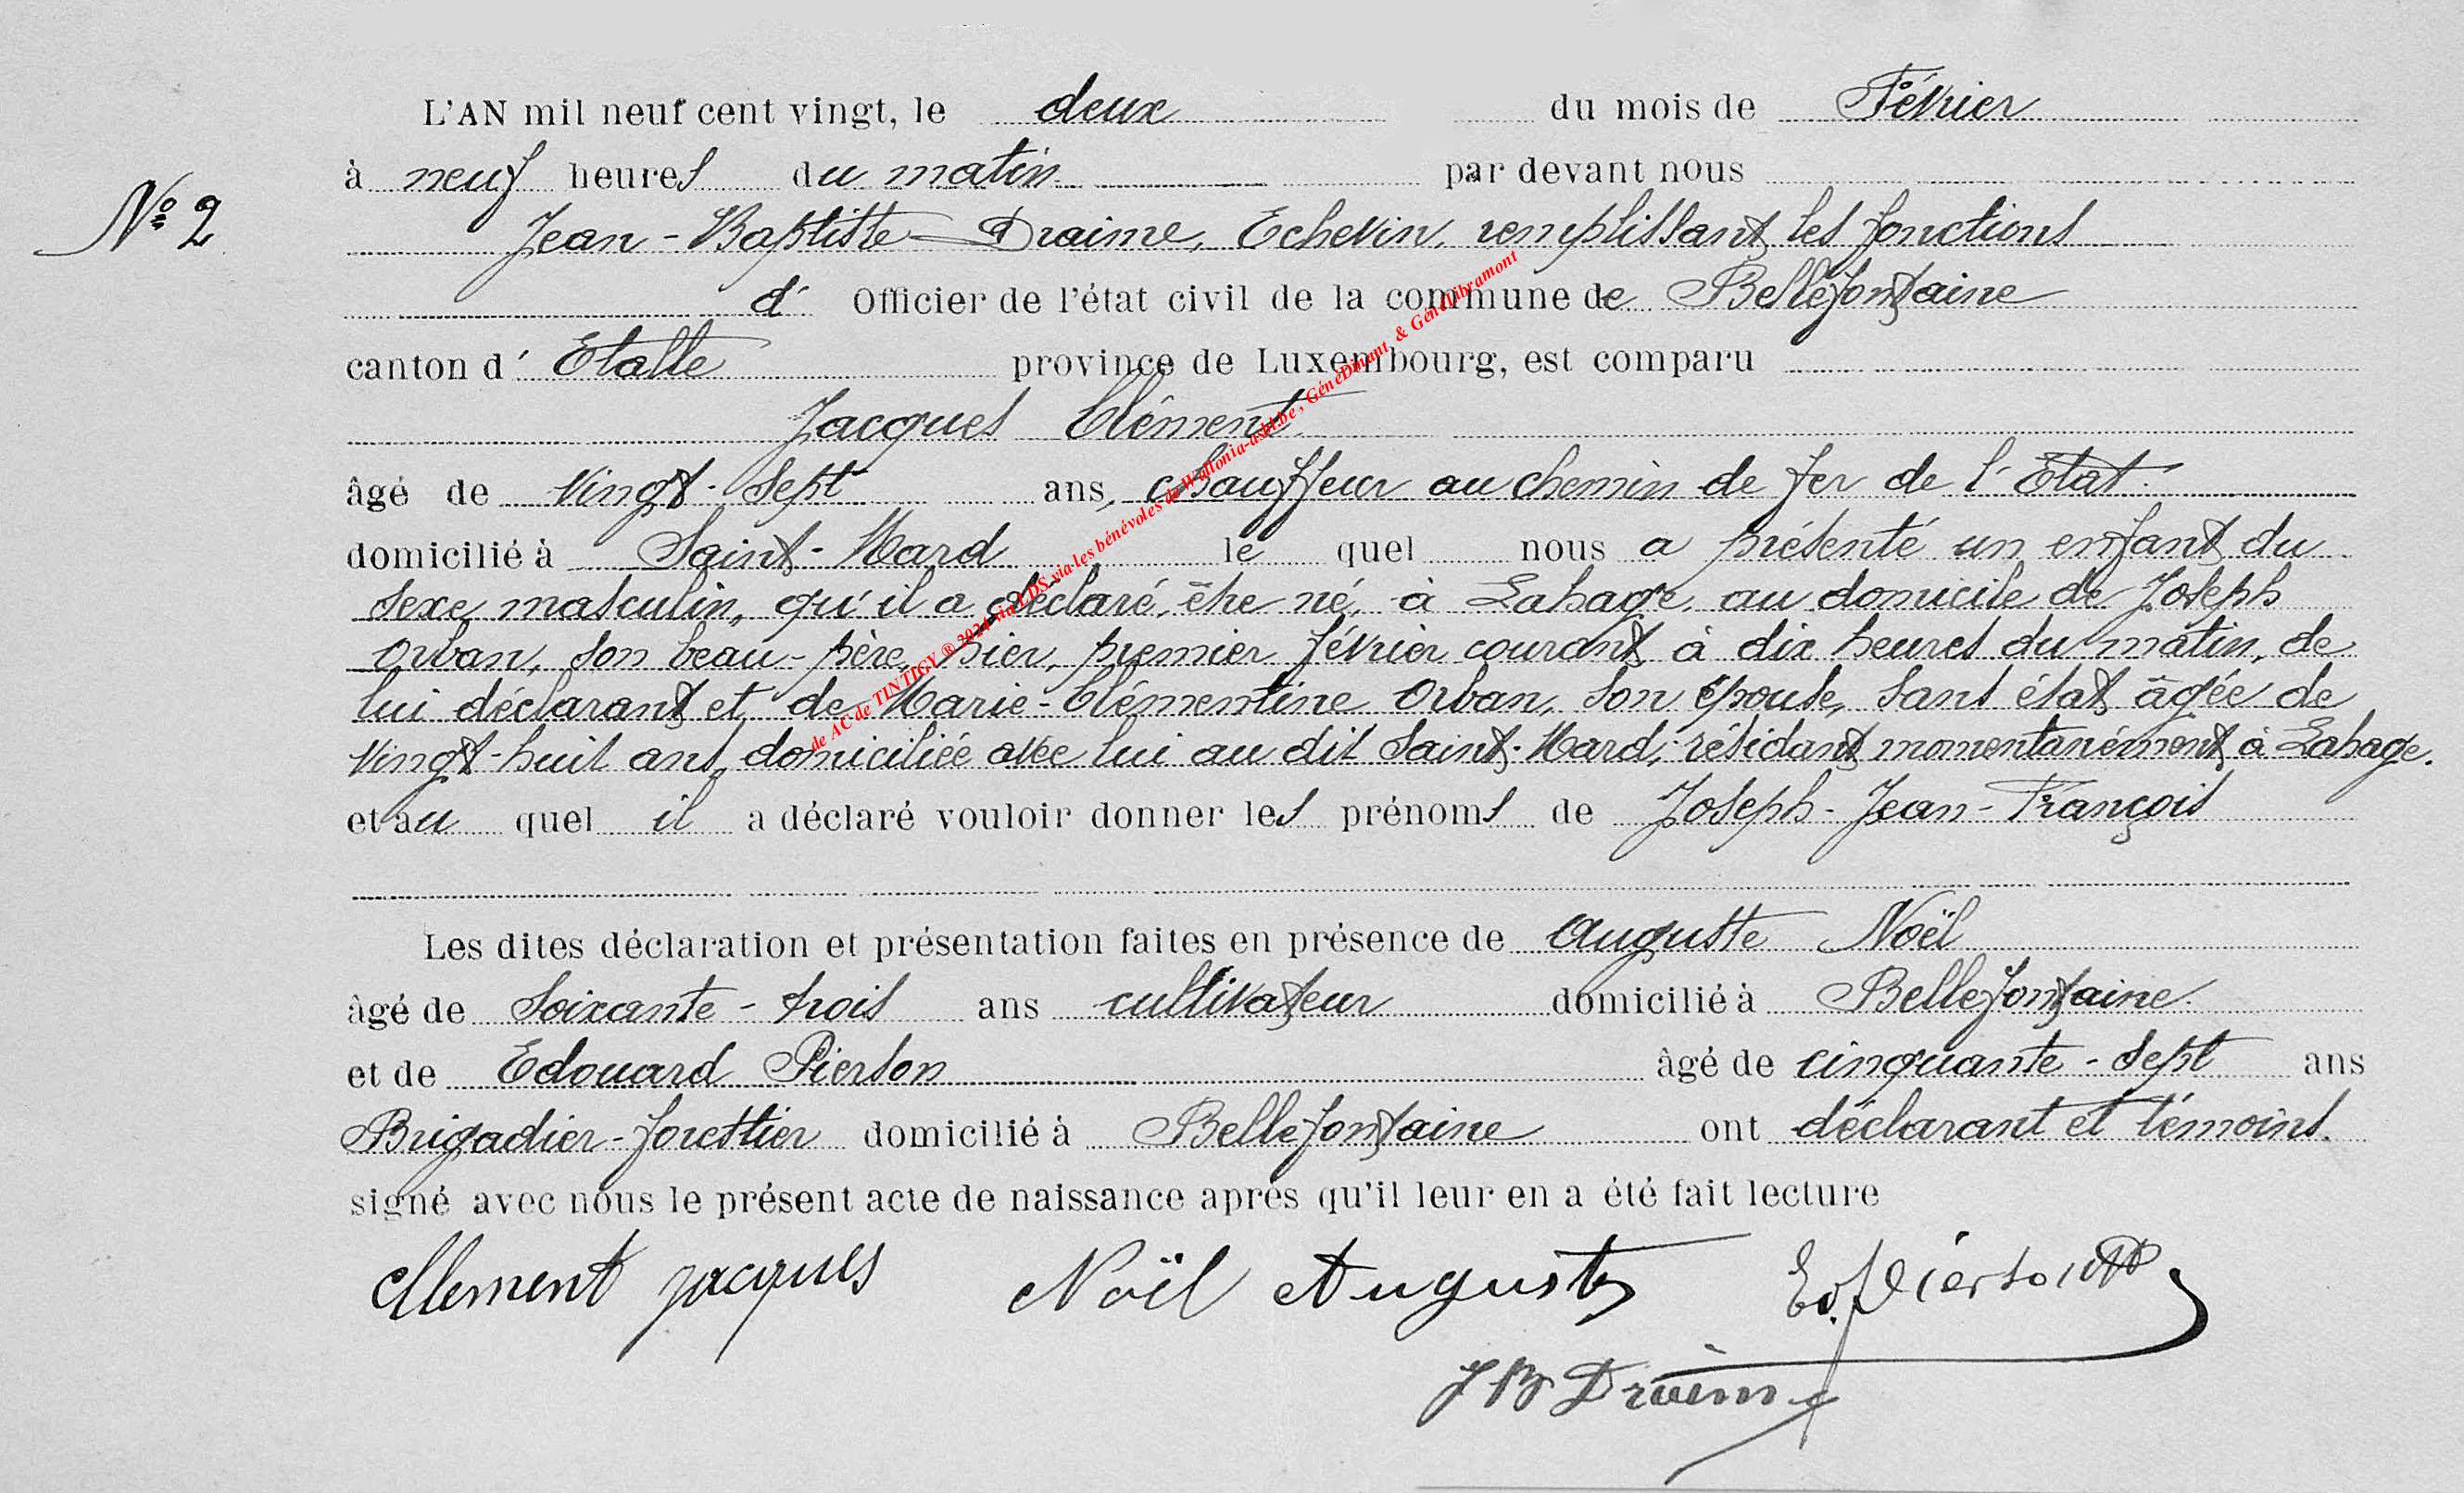 L'AN mil neuf cent vingt, le deux du mois de Février
à neuf heures du matin par devant nous
N° 2
Jean-Baptiste Draime, Echevin, remplissant les fonctions
d' Officier de l'état civil de la commune de Bellefontaine
canton d' Etalle province de Luxembourg, est comparu
Jacques Clément
âgé de vingt-sept ans, chauffeur au chemin de fer de l'Etat.
domicilié à Saint-Mard le quel nous a présenté un enfant du
sexe masculin, qu'il a déclaré, être né, à Lahage, au domicile de Joseph
Orban, son beau-père, hier, premier février courant à dix heures du matin, de
lui déclarant et de Marie-Clémentine Orban, son épouse, sans état âgée de
vingt-huit ans, domiciliée avec lui au dit Saint-Mard, résidant momentanément à Lahage.
et au quel il a déclaré vouloir donner les prénoms de Joseph-Jean-François
Les dites déclaration et présentation faites en présence de Auguste Noël
âgé de soixante-trois ans cultivateur domicilié à Bellefontaine.
et de Edouard Pierson âgé de cinquante-sept ans
Brigadier-forestier domicilié à Bellefontaine ont déclarant et témoins.
signé avec nous le présent acte de naissance après qu'il leur en a été fait lecture
Clement Jacques Noël Auguste Ed. Pierson
J B Draime
de AC de TINTIGY ® 2024 via LDS via les bénévoles de Wallonia-asbl.be, GénéDinant & GénéLibramont